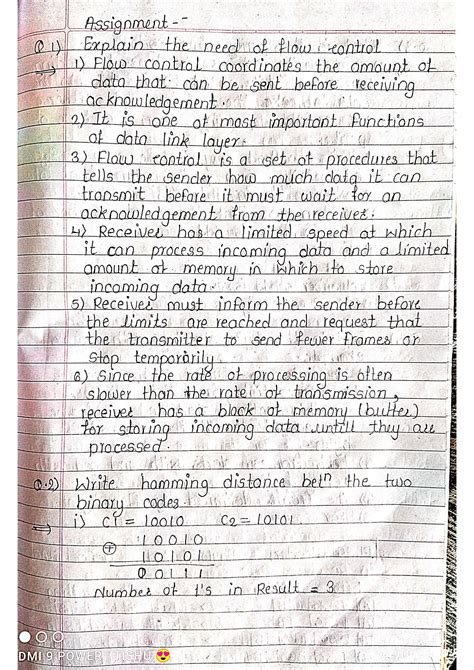 Assignment :-
Q.1) Explain the need of flow control
⇒ 1) Flow control coordinates the amount of
data that can be sent before receiving
acknowledgement.
2) It is one of most important functions
of data link layer.
3) Flow control is a set of procedures that
tells the sender how much data it can
transmit before it must wait for an
acknowledgement from the receiver.
4) Receiver has a limited speed at which
it can process incoming data and a limited
amount of memory in which to store
incoming data.
5) Receiver must inform the sender before
the limits are reached and request that
the transmitter to send fewer frames or
stop temporarily.
6) Since the rate of processing is often
slower than the rate of transmission,
receiver has a block of memory (buffer)
for storing incoming data untill they are
processed.
Q.2) Write hamming distance betn the two
binary codes
⇒ i) C1 = 10010 C2 = 10101
10010
⊕ 10101
00111
Number of 1's in Result = 3
DMI 9 POWER